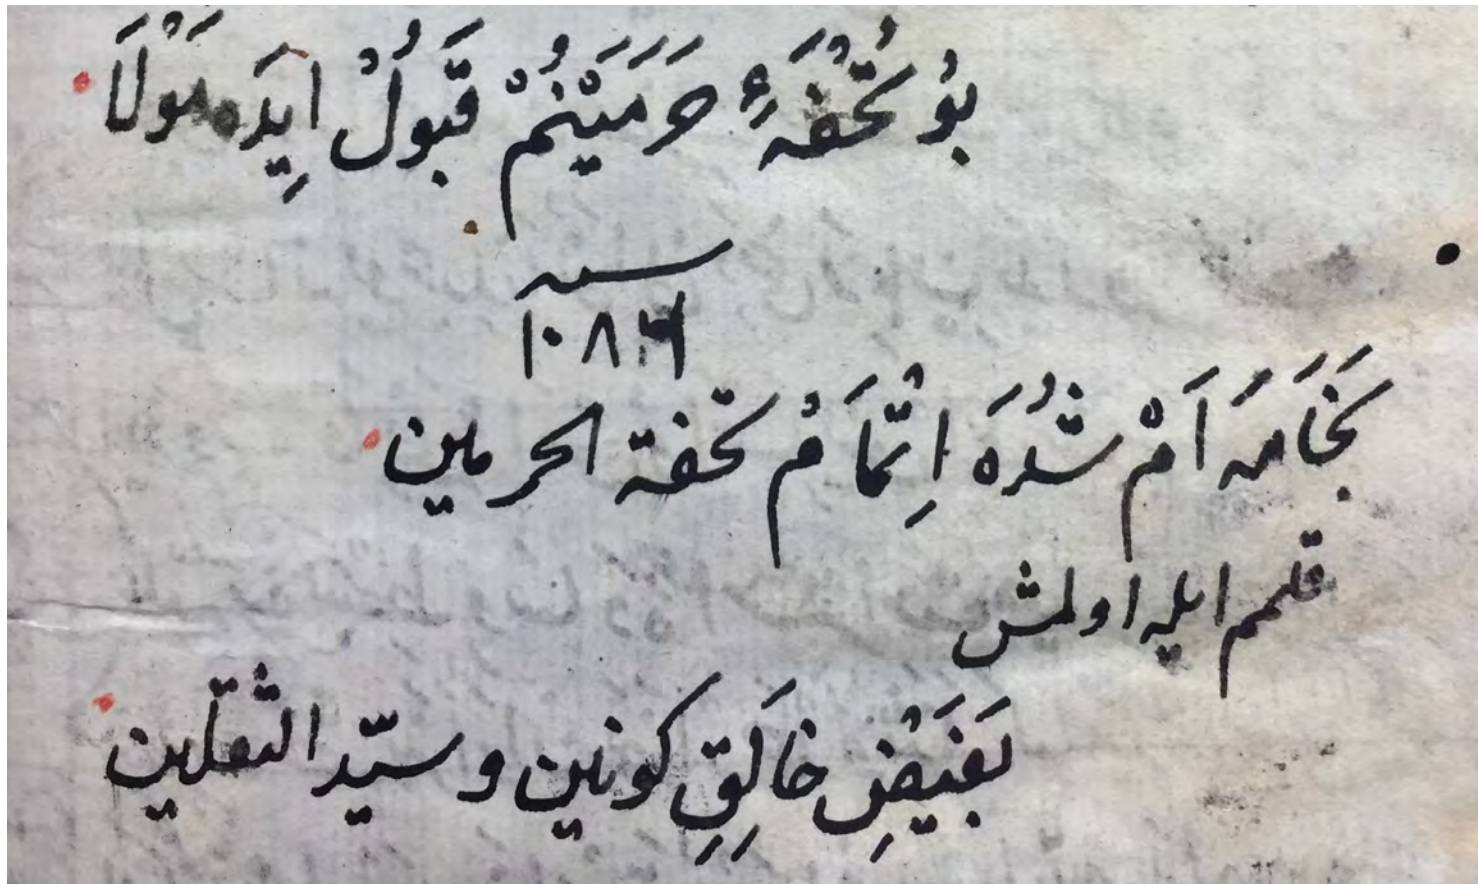 بُو تُحْفَۀِ حَرَمَيْنُمْ قَبُولْ ايِدَه مَوْلَا
سنه
بَخَامَه اَمْ شُدَه اِتْمَامُ تحفة الحرمين
قلمم ايله اولمش
بَفَيْضِ خَالِقِ كونين و سيّد الثقلين